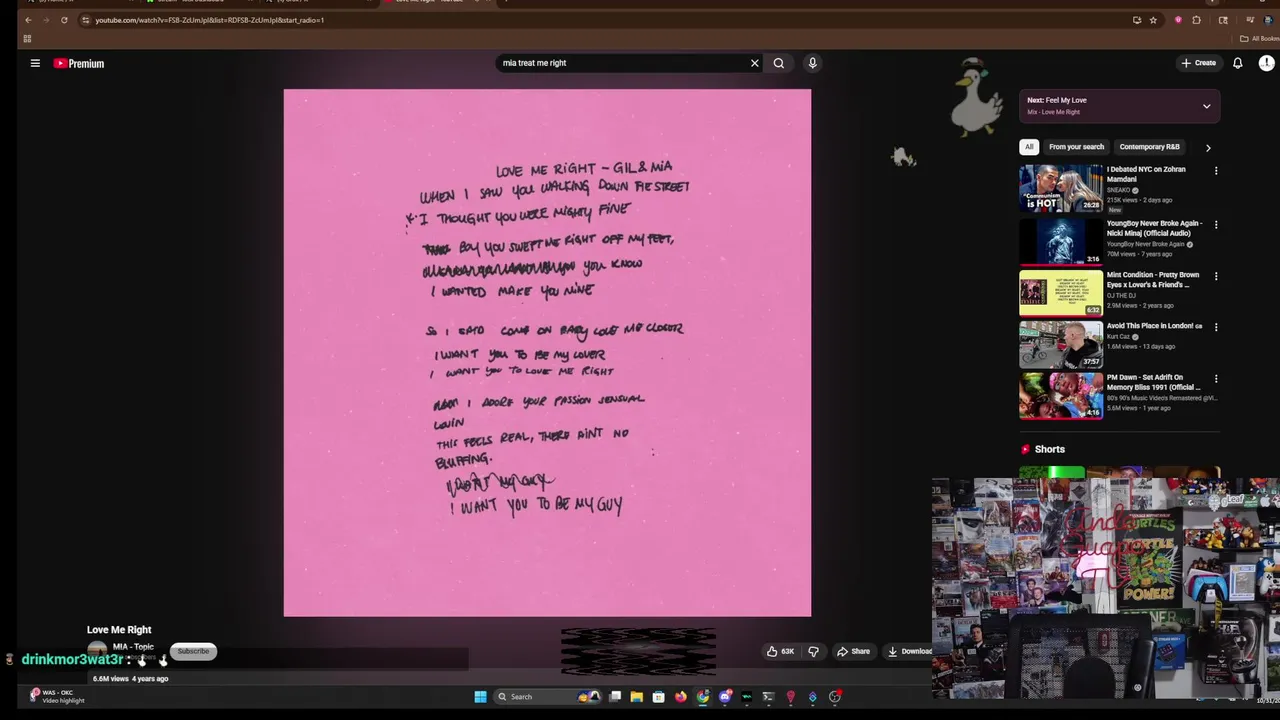 youtube.com/watch?v=FSB-ZcUmJpI&list=RDFSB-ZcUmJpI&start_radio=1
All Bookm
Premium
mia treat me right
Create
LOVE ME RIGHT - GIL & MIA
WHEN I SAW YOU WALKING DOWN THE STREET
I THOUGHT YOU WERE MIGHTY FINE
BOY YOU SWEPT ME RIGHT OFF MY FEET,
YOU KNOW
I WANTED MAKE YOU MINE
SO I SAID COME ON BABY LOVE ME CLOSER
I WANT YOU TO BE MY LOVER
I WANT YOU TO LOVE ME RIGHT
I ADORE YOUR PASSION SENSUAL
LOVIN
THIS FEELS REAL, THERE AINT NO
BLUFFING.
I WANT YOU TO BE MY GUY
Next: Feel My Love
Mix - Love Me Right
All From your search Contemporary R&B
I Debated NYC on Zohran
Mamdani
SNEAKO
215K views • 2 days ago
New
"Communism
is HOT"
26:28
YoungBoy Never Broke Again -
Nicki Minaj (Official Audio)
YoungBoy Never Broke Again
70M views • 7 years ago
3:16
Mint Condition - Pretty Brown
Eyes x Lover's & Friend's ...
DJ THE DJ
2.9M views • 2 years ago
6:32
Avoid This Place in London!
Kurt Caz
1.6M views • 13 days ago
37:57
PM Dawn - Set Adrift On
Memory Bliss 1991 (Official ...
80's 90's Music Video's Remastered @Vi...
5.6M views • 1 year ago
4:16
Shorts
Leaf
TURTLES
POWER!
Love Me Right
MIA - Topic
Subscribe
63K
Share
Download
drinkmor3wat3r :
6.6M views 4 years ago
WAS - OKC
Video highlight
Search
10/31/20